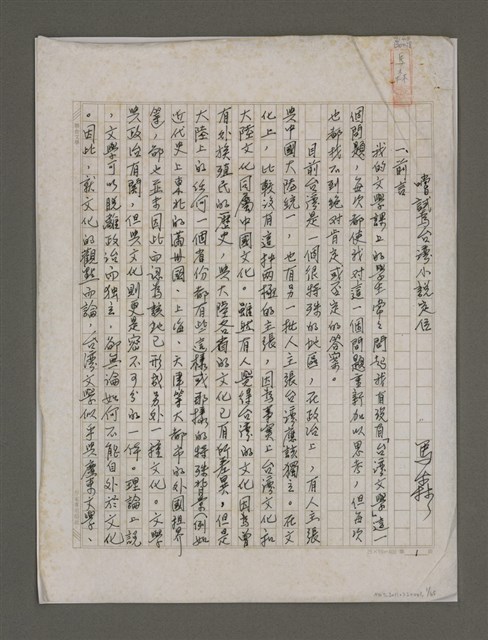 嘗試為台灣小說定位
馬森
一、前言
我的文學課上的學生常常問起我有沒有「台灣文學」這一
個問題,每次都使我對這一個問題重新加以思考,但每次
也都找不到絕對肯定或否定的答案。
目前台灣是一個很特殊的地區,在政治上,有人主張
與中國大陸統一,也有另一批人主張台灣應該獨立。在文
化上,比較沒有這種兩極的主張,因為事實上台灣文化和
大陸文化同屬中國文化。雖然有人覺得台灣的文化因為曾
有外族殖民的歷史,與大陸各省的文化已有所差異,但是
大陸上的任何一個省份都有些這樣或那樣的特殊背景(例如
近代史上東北的滿州國、上海、天津等大都市的外國租界
等,卻也並未因此而認為該地已形成另外一種文化。文學
與政治有關,但與文化則更是密不可分的一體。理論上說
,文學可以脫離政治而獨立,卻無論如何不能自外於文化
。因此,就文化的觀點而論,台灣文學似乎與廣東文學、
1